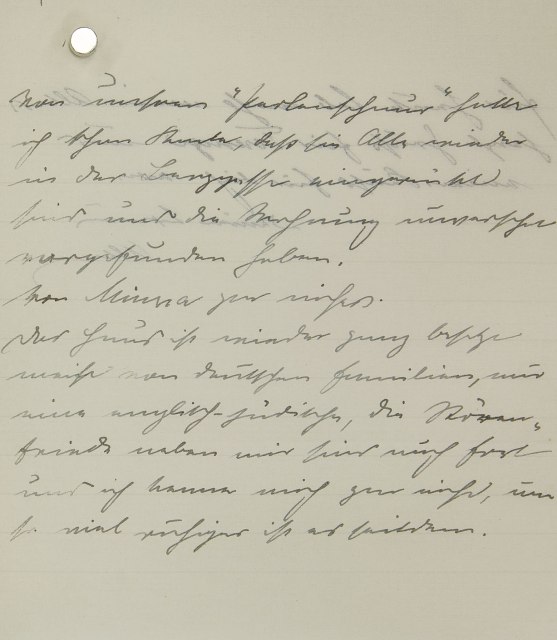 von unserer "Perlenschnur" hatte
ich schon Kunde, daß sie Alle wieder
in der Berggasse eingerückt
sind und die Wohnung unversehrt
vorgefunden haben.
Von Minna gar nichts.
Das Haus ist wieder ganz besetzt
meist von deutschen Familien, nur
eine englisch-jüdische, die Stören-
friede neben mir sind auch fort
und ich kenne mich gar nicht, um
so viel ruhiger ist es seitdem.